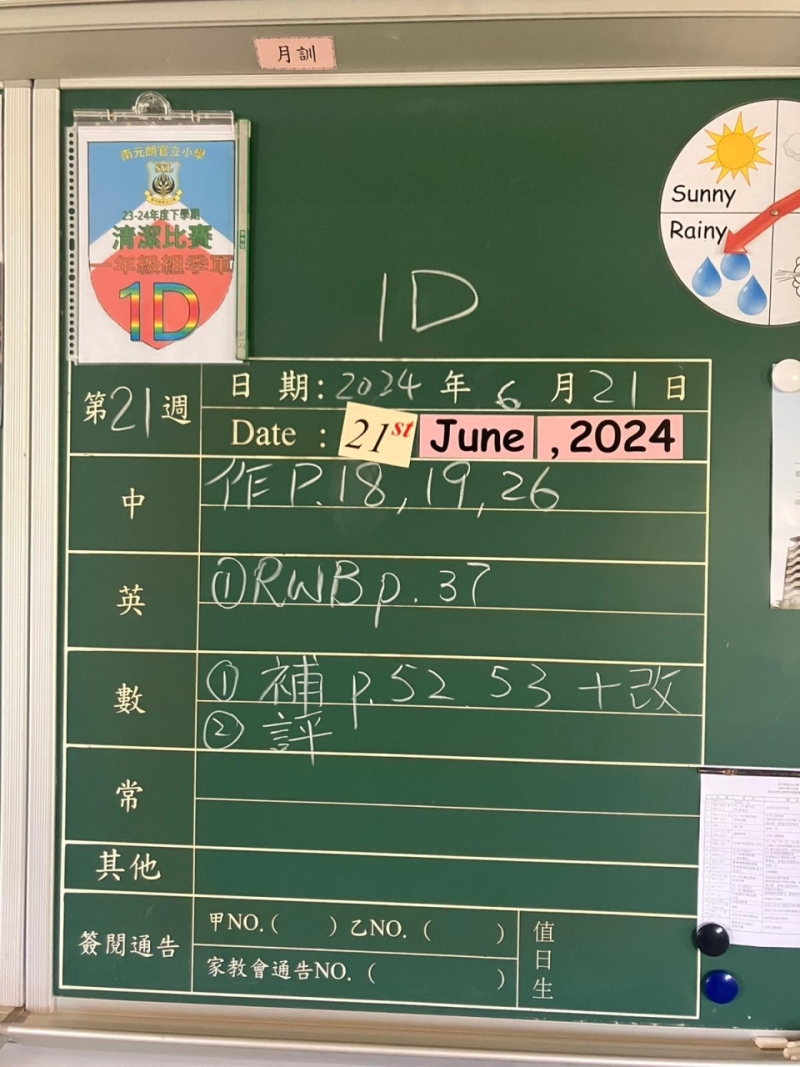 月訓
南元朗官立小學
23-24年度下學期
清潔比賽
一年級組季軍
1D
Sunny
Rainy
1D
第21週
日期:2024年6月21日
Date : 21st June , 2024
中
作P.18,19,26
英
①RWB p.37
數
①補 p.52.53+改
②評
常
其他
簽閱通告
甲NO.( ) 乙NO. ( )
家教會通告NO. ( )
值日生